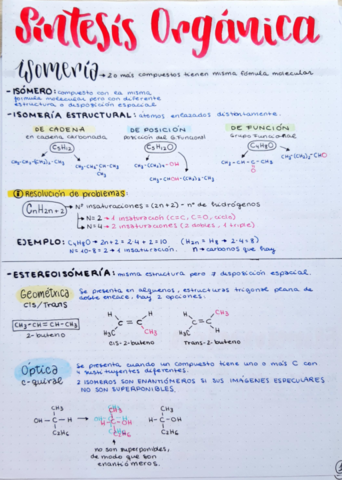 Síntesis Orgánica
Isomería → 2 o más compuestos tienen misma fórmula molecular
- ISÓMERO: compuesto con la misma
fórmula molecular pero con diferente
estructura o disposición espacial
- ISOMERÍA ESTRUCTURAL: átomos enlazados distintamente.
DE CADENA DE POSICIÓN DE FUNCIÓN
en cadena carbonada Posición del G.Funcional Grupo Funcional
C5H12 C5H12O C4H8O
CH3-CH2-(CH2)2-CH3
CH3-CH2-CH-CH3
CH3
CH3-(CH2)3-CH2-OH
CH3-CHOH-(CH2)2-CH3
CH3-CH-C-CH3
O
CH3-(CH2)2-CHO
Resolución de problemas:
CnH2n+2 → Nº insaturaciones = (2n+2) - nº de hidrógenos
N=2 → 1 insaturación (C=C, C=O, ciclo)
N=4 → 2 insaturaciones (2 dobles, 1 triple)
EJEMPLO: C4H8O → 2n+2 = 2·4+2=10. (H2n = H8 → 2·4=8)
N=10-8=2 → 1 insaturación. n = carbonos que hay
- ESTEREOISOMERÍA: misma estructura pero ≠ disposición espacial.
Geométrica
Cis/Trans
Se presenta en alquenos, estructuras trigonal plana de
doble enlace. hay 2 opciones.
CH3-CH=CH-CH3
2-buteno
H H
C=C
H3C CH3
Cis-2-buteno
H CH3
C=C
H3C H
Trans-2-buteno
Óptica
C-quiral
Se presenta cuando un compuesto tiene uno o más C con
4 sustituyentes diferentes.
2 ISOMEROS SON ENANTIÓMEROS SI SUS IMÁGENES ESPECULARES
NO SON SUPERPONIBLES.
CH3
OH-C-H
C2H5
CH3
H-C-OH
C2H5
no son superponibles,
de modo que son
enantiómeros.